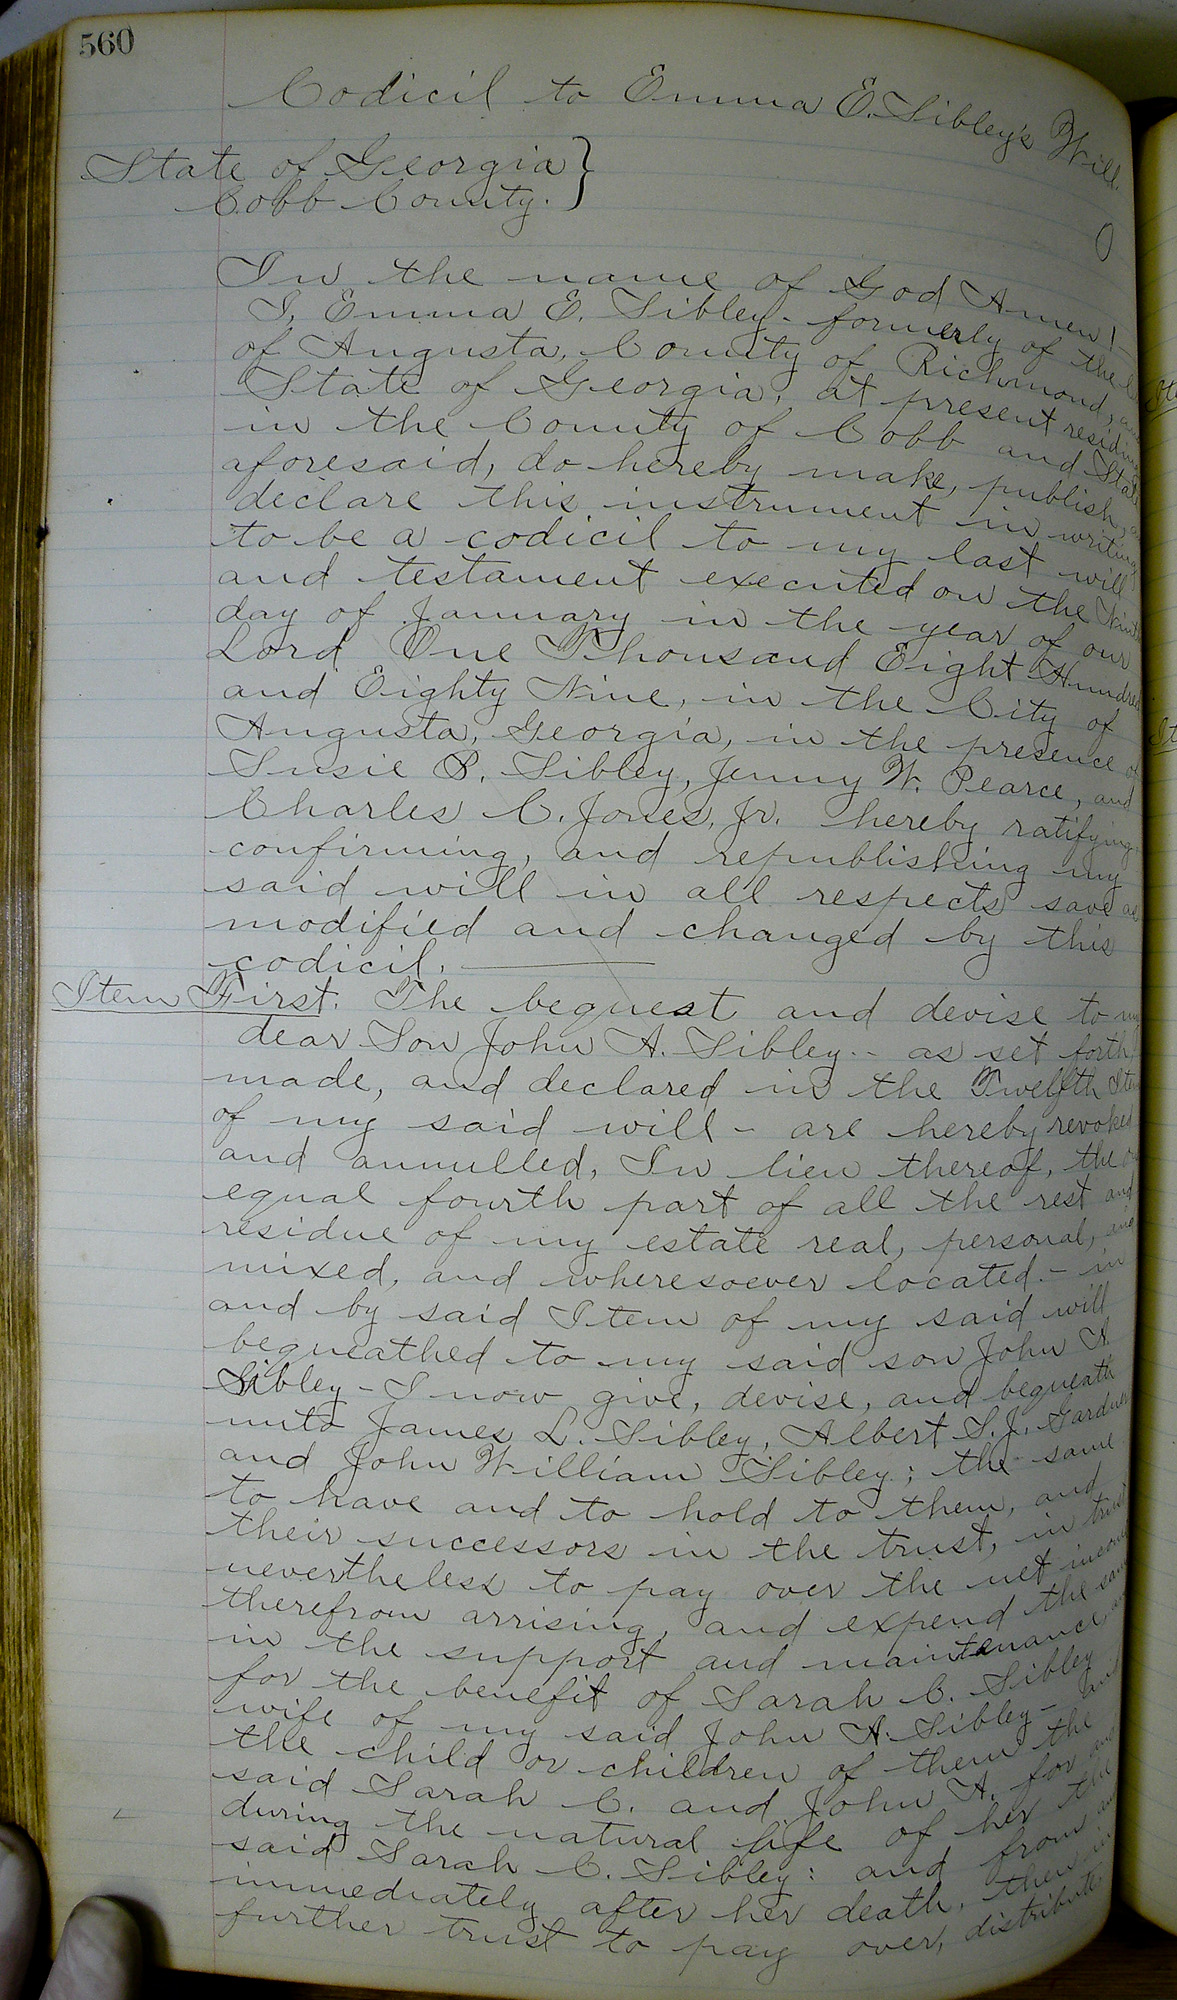 560
Codicil to Emma E. Sibley's Will.
State of Georgia }
Cobb County. }
In the name of God Amen!
I, Emma E. Sibley - formerly of the
of Augusta, County of Richmond, and
State of Georgia, at present residing
in the County of Cobb and State
aforesaid, do hereby make, publish, and
declare this instrument in writing
to be a codicil to my last will
and testament executed on the Ninth
day of January in the year of our
Lord One Thousand Eight Hundred
and Eighty Nine, in the City of
Augusta, Georgia, in the presence of
Susie P. Sibley, Jenny W. Pearce, and
Charles C. Jones, Jr. hereby ratifying,
confirming, and republishing my
said will in all respects save as
modified and changed by this
codicil.
Item First. The bequest and devise to my
dear Son John A. Sibley - as set forth,
made, and declared in the Twelfth Item
of my said will - are hereby revoked
and annulled, In lieu thereof, the
equal fourth part of all the rest and
residue of my estate real, personal, and
mixed, and wheresoever located - in
and by said Item of my said will
bequeathed to my said son John A.
Sibley - I now give, devise, and bequeath
unto James L. Sibley, Albert S. J. Gardner
and John William Sibley; the same
to have and to hold to them, and
their successors in the trust, in trust
nevertheless to pay over the net income
therefrom arrising, and expend the same
in the support and maintenance and
for the benefit of Sarah C. Sibley
wife of my said John A. Sibley - and
the child or children of them the
said Sarah C. and John A. for and
during the natural life of her the
said Sarah C. Sibley: and from and
immediately after her death, then in
further trust to pay over, distribute,